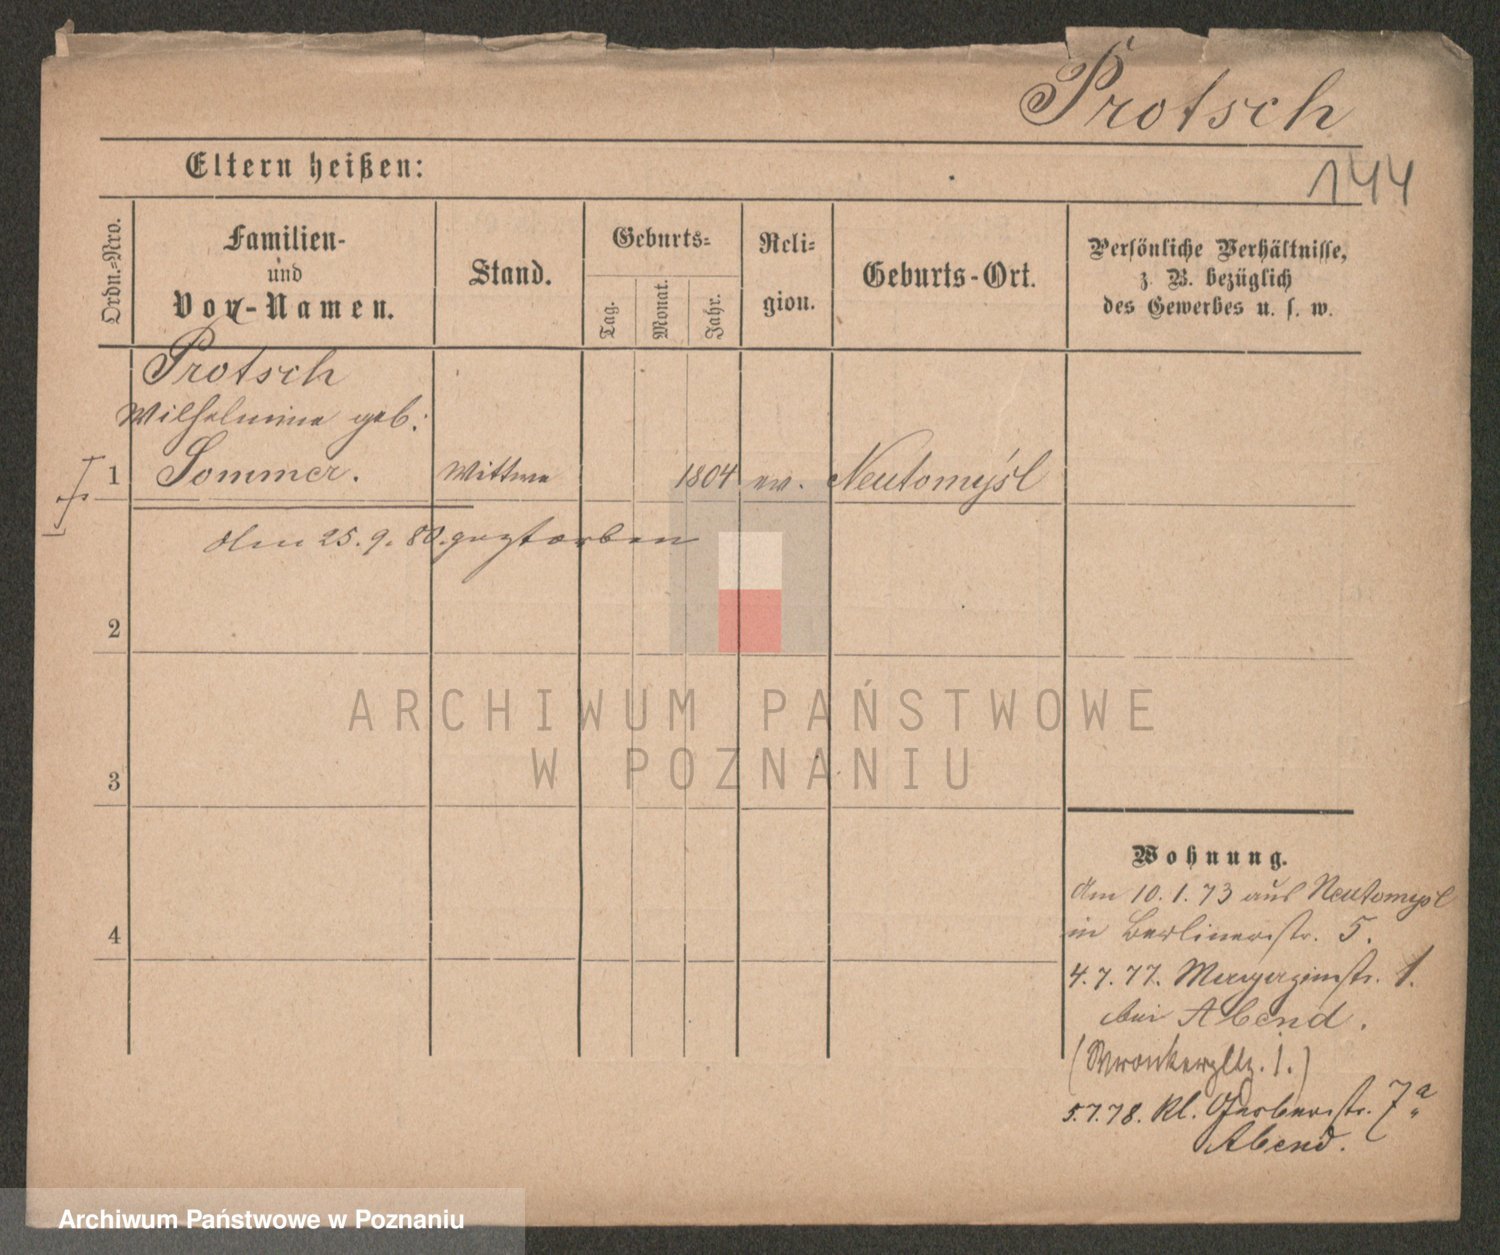 Protsch
144
Eltern heißen:
Ordn.-Nro.
Familien-
und
Vor-Namen.
Stand.
Geburts-
Tag.
Monat.
Jahr.
Reli-
gion.
Geburts-Ort.
Persönliche Verhältnisse,
z. B. bezüglich
des Gewerbes u. s. w.
Protsch
Wilhelmine geb:
1 Sommer. Wittwe 1804 ev. Neutomyśl
den 25.9.80. gestorben
2
3
4
Wohnung.
Am 10.1.73 aus Neutomyśl
in Berlinerstr. 5.
4.7.77. Magazinstr. 1.
bei Abend.
(Wronkerpltz. 1.)
5.7.78. Kl. Gerberstr. 7a
Abend.
ARCHIWUM PAŃSTWOWE
W POZNANIU
Archiwum Państwowe w Poznaniu